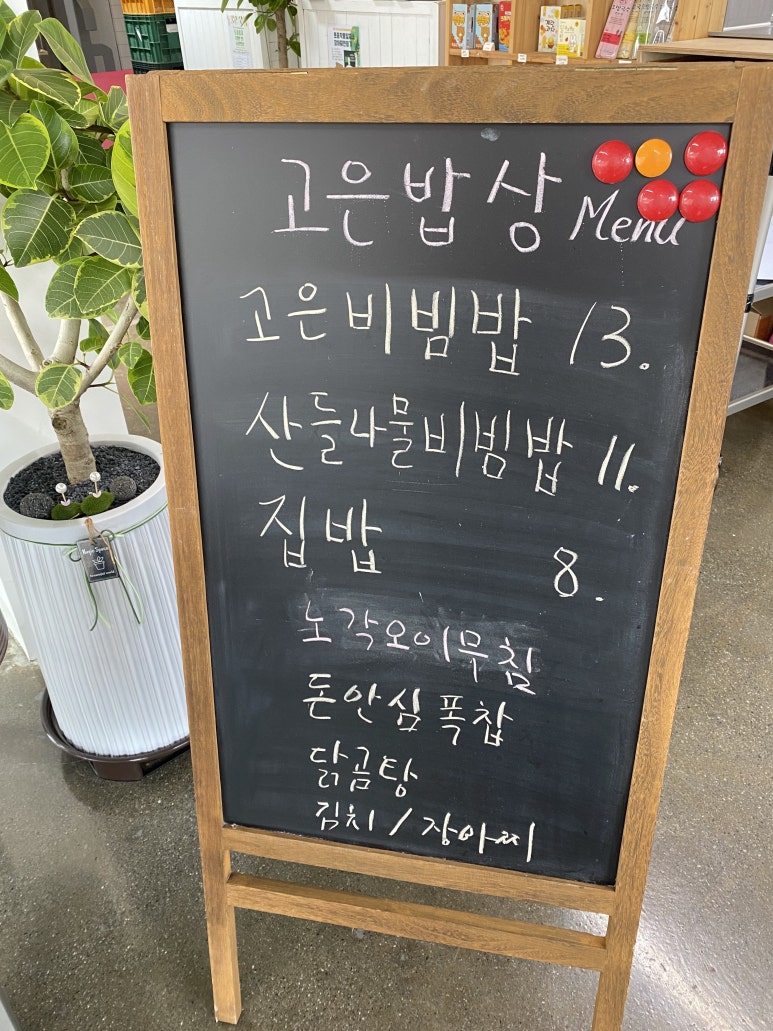 고은밥상 Menu
고은비빔밥 13.
산들나물비빔밥 11.
집밥 8.
노각오이무침
돈안심폭찹
닭곰탕
김치/장아찌